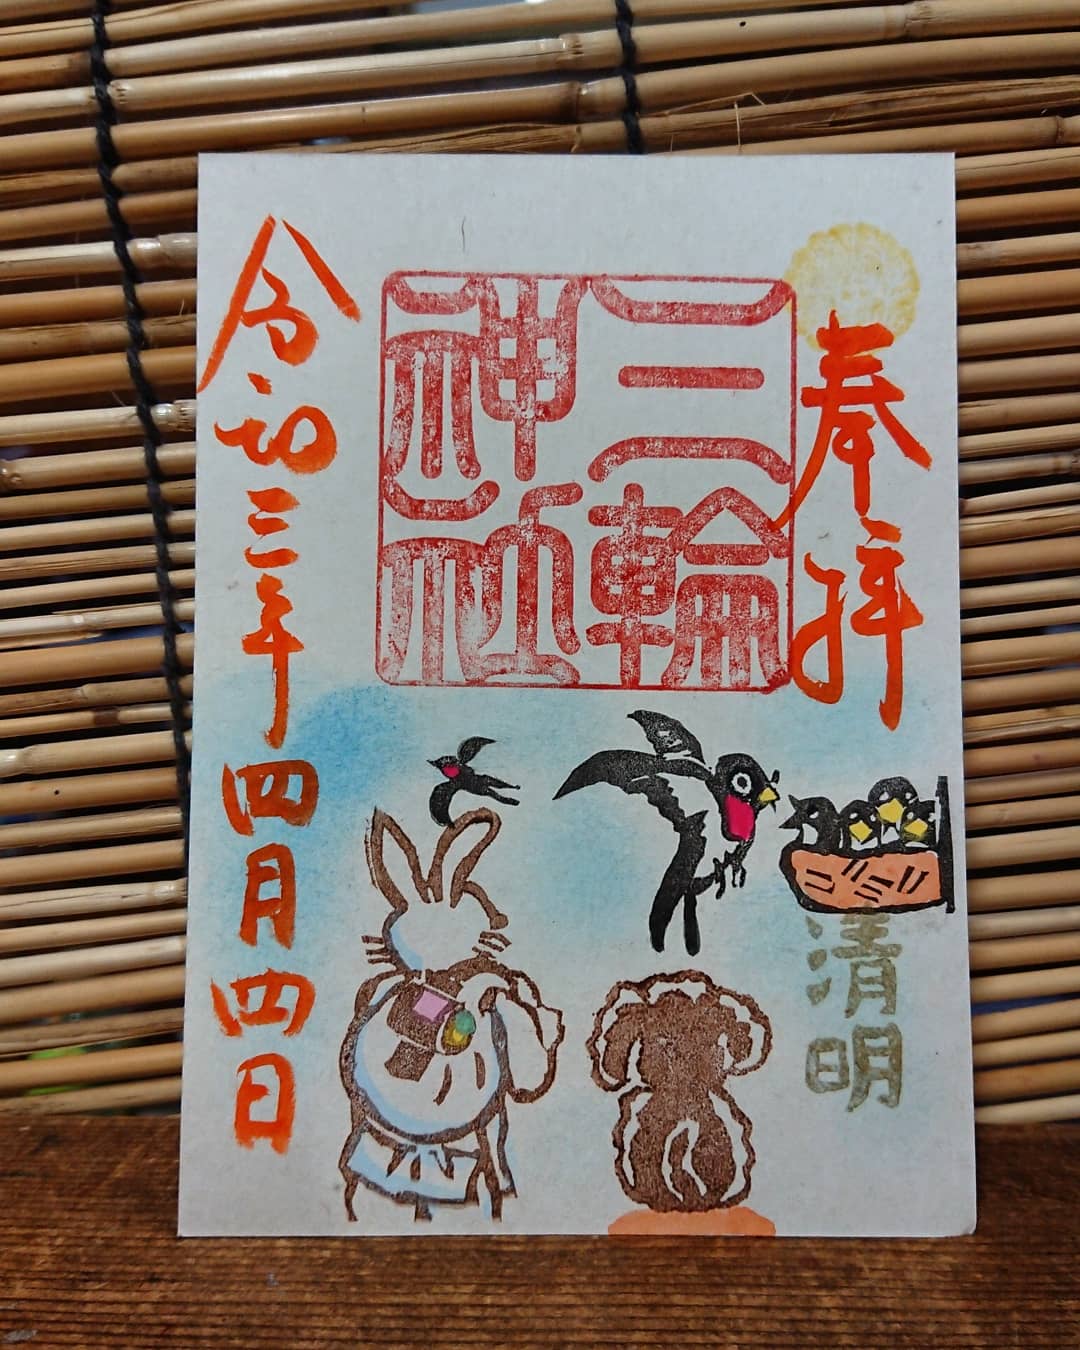 奉拝
三輪
神社
清明
令和三年四月四日